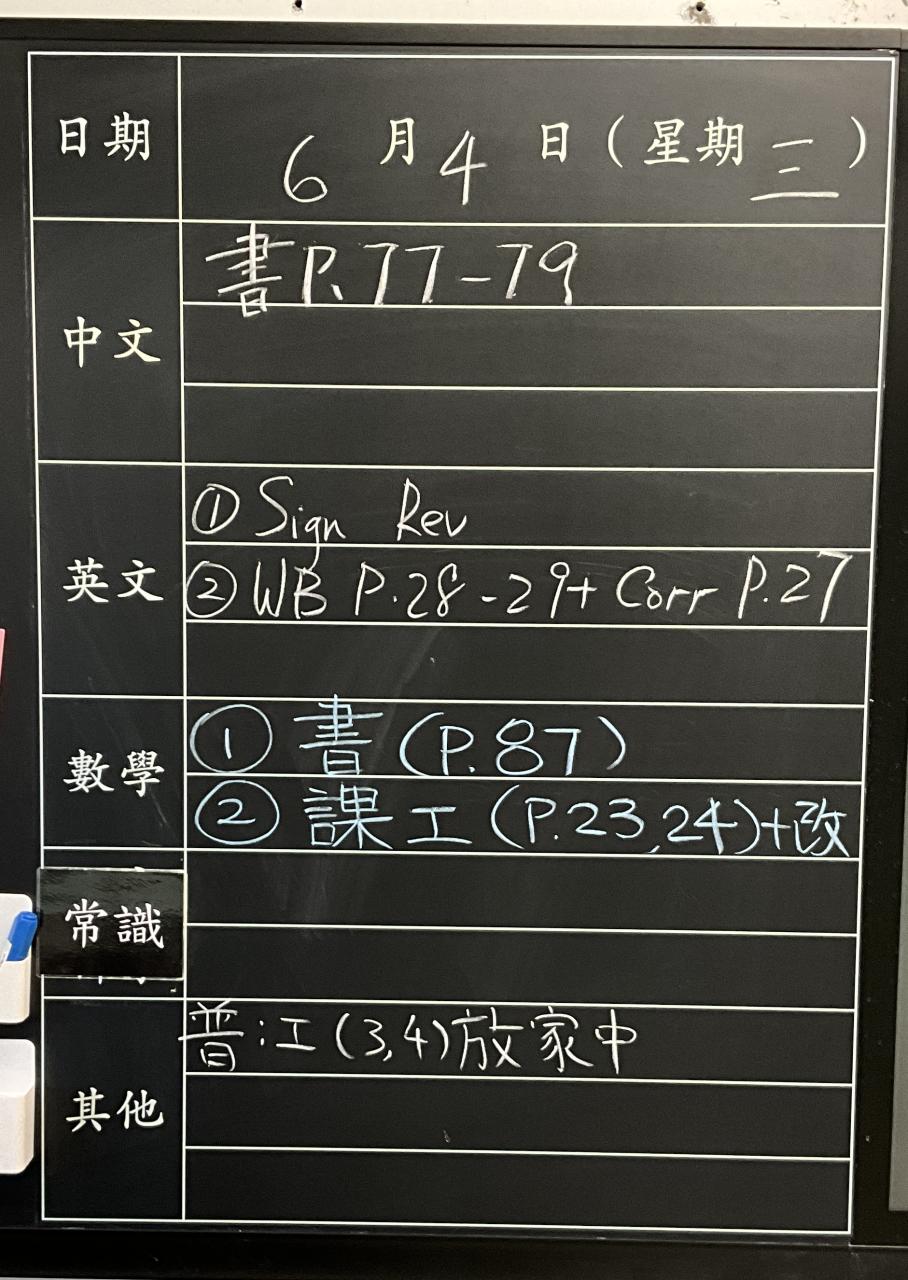 日期 6月4日(星期三)
中文 書P.77-79
英文 ①Sign Rev
②WB P.28-29+ Corr P.27
數學 ①書(P.87)
②課工(P.23,24)+改
常識
其他 普:工(3,4)放家中